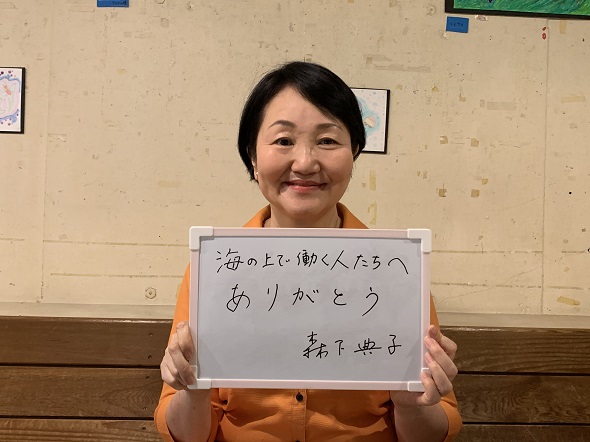 海の上で働く人たちへ
ありがとう
森下典子